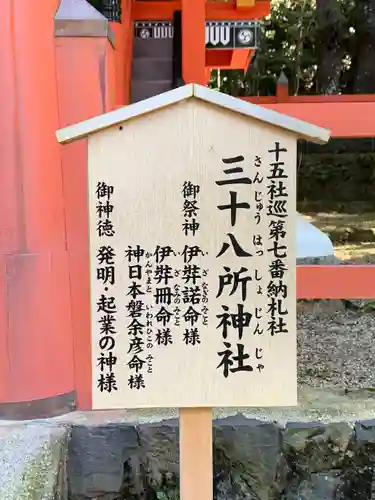 十五社巡第七番納札社
三十八所神社
さんじゅう はっ しょ じん じゃ
御祭神
伊弉諾命様
いざなぎのみこと
伊弉冊命様
いざなみのみこと
神日本磐余彦命様
かんやまと いわれひこの みこと
御神徳
発明・起業の神様